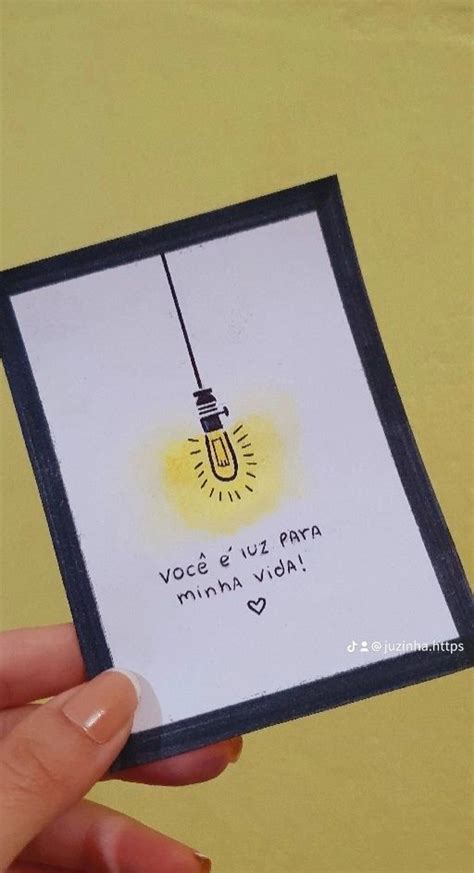 você é luz para
minha vida!
@juzinha.https